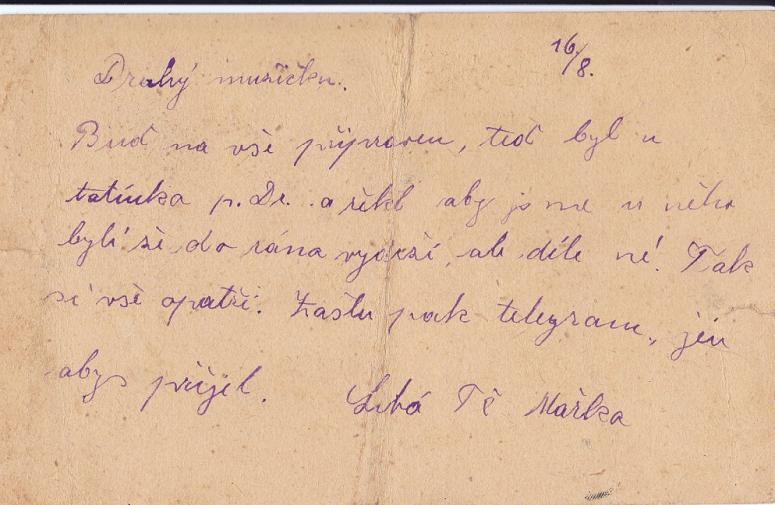 16/8.
Drahý mužíčku.
Buď na vše připraven, teď byl u
tatínka p. Dr. a řekl aby jsme u něho
byli že do rána vydrží, ale díle né! Tak
si vše opatři. Zašlu pak telegram, jen
abys přijel. Líbá Tě Mařka